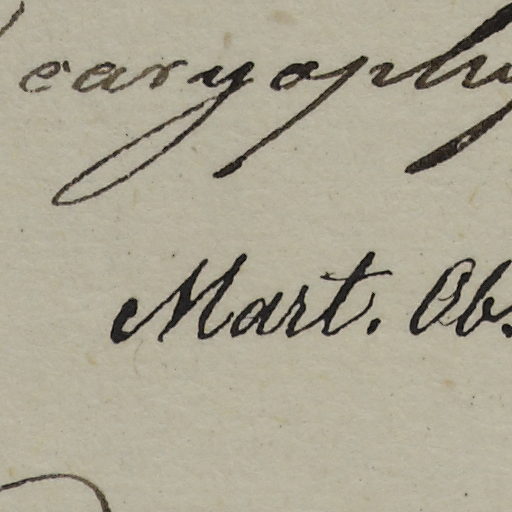 caryophy
Mart. Obs.